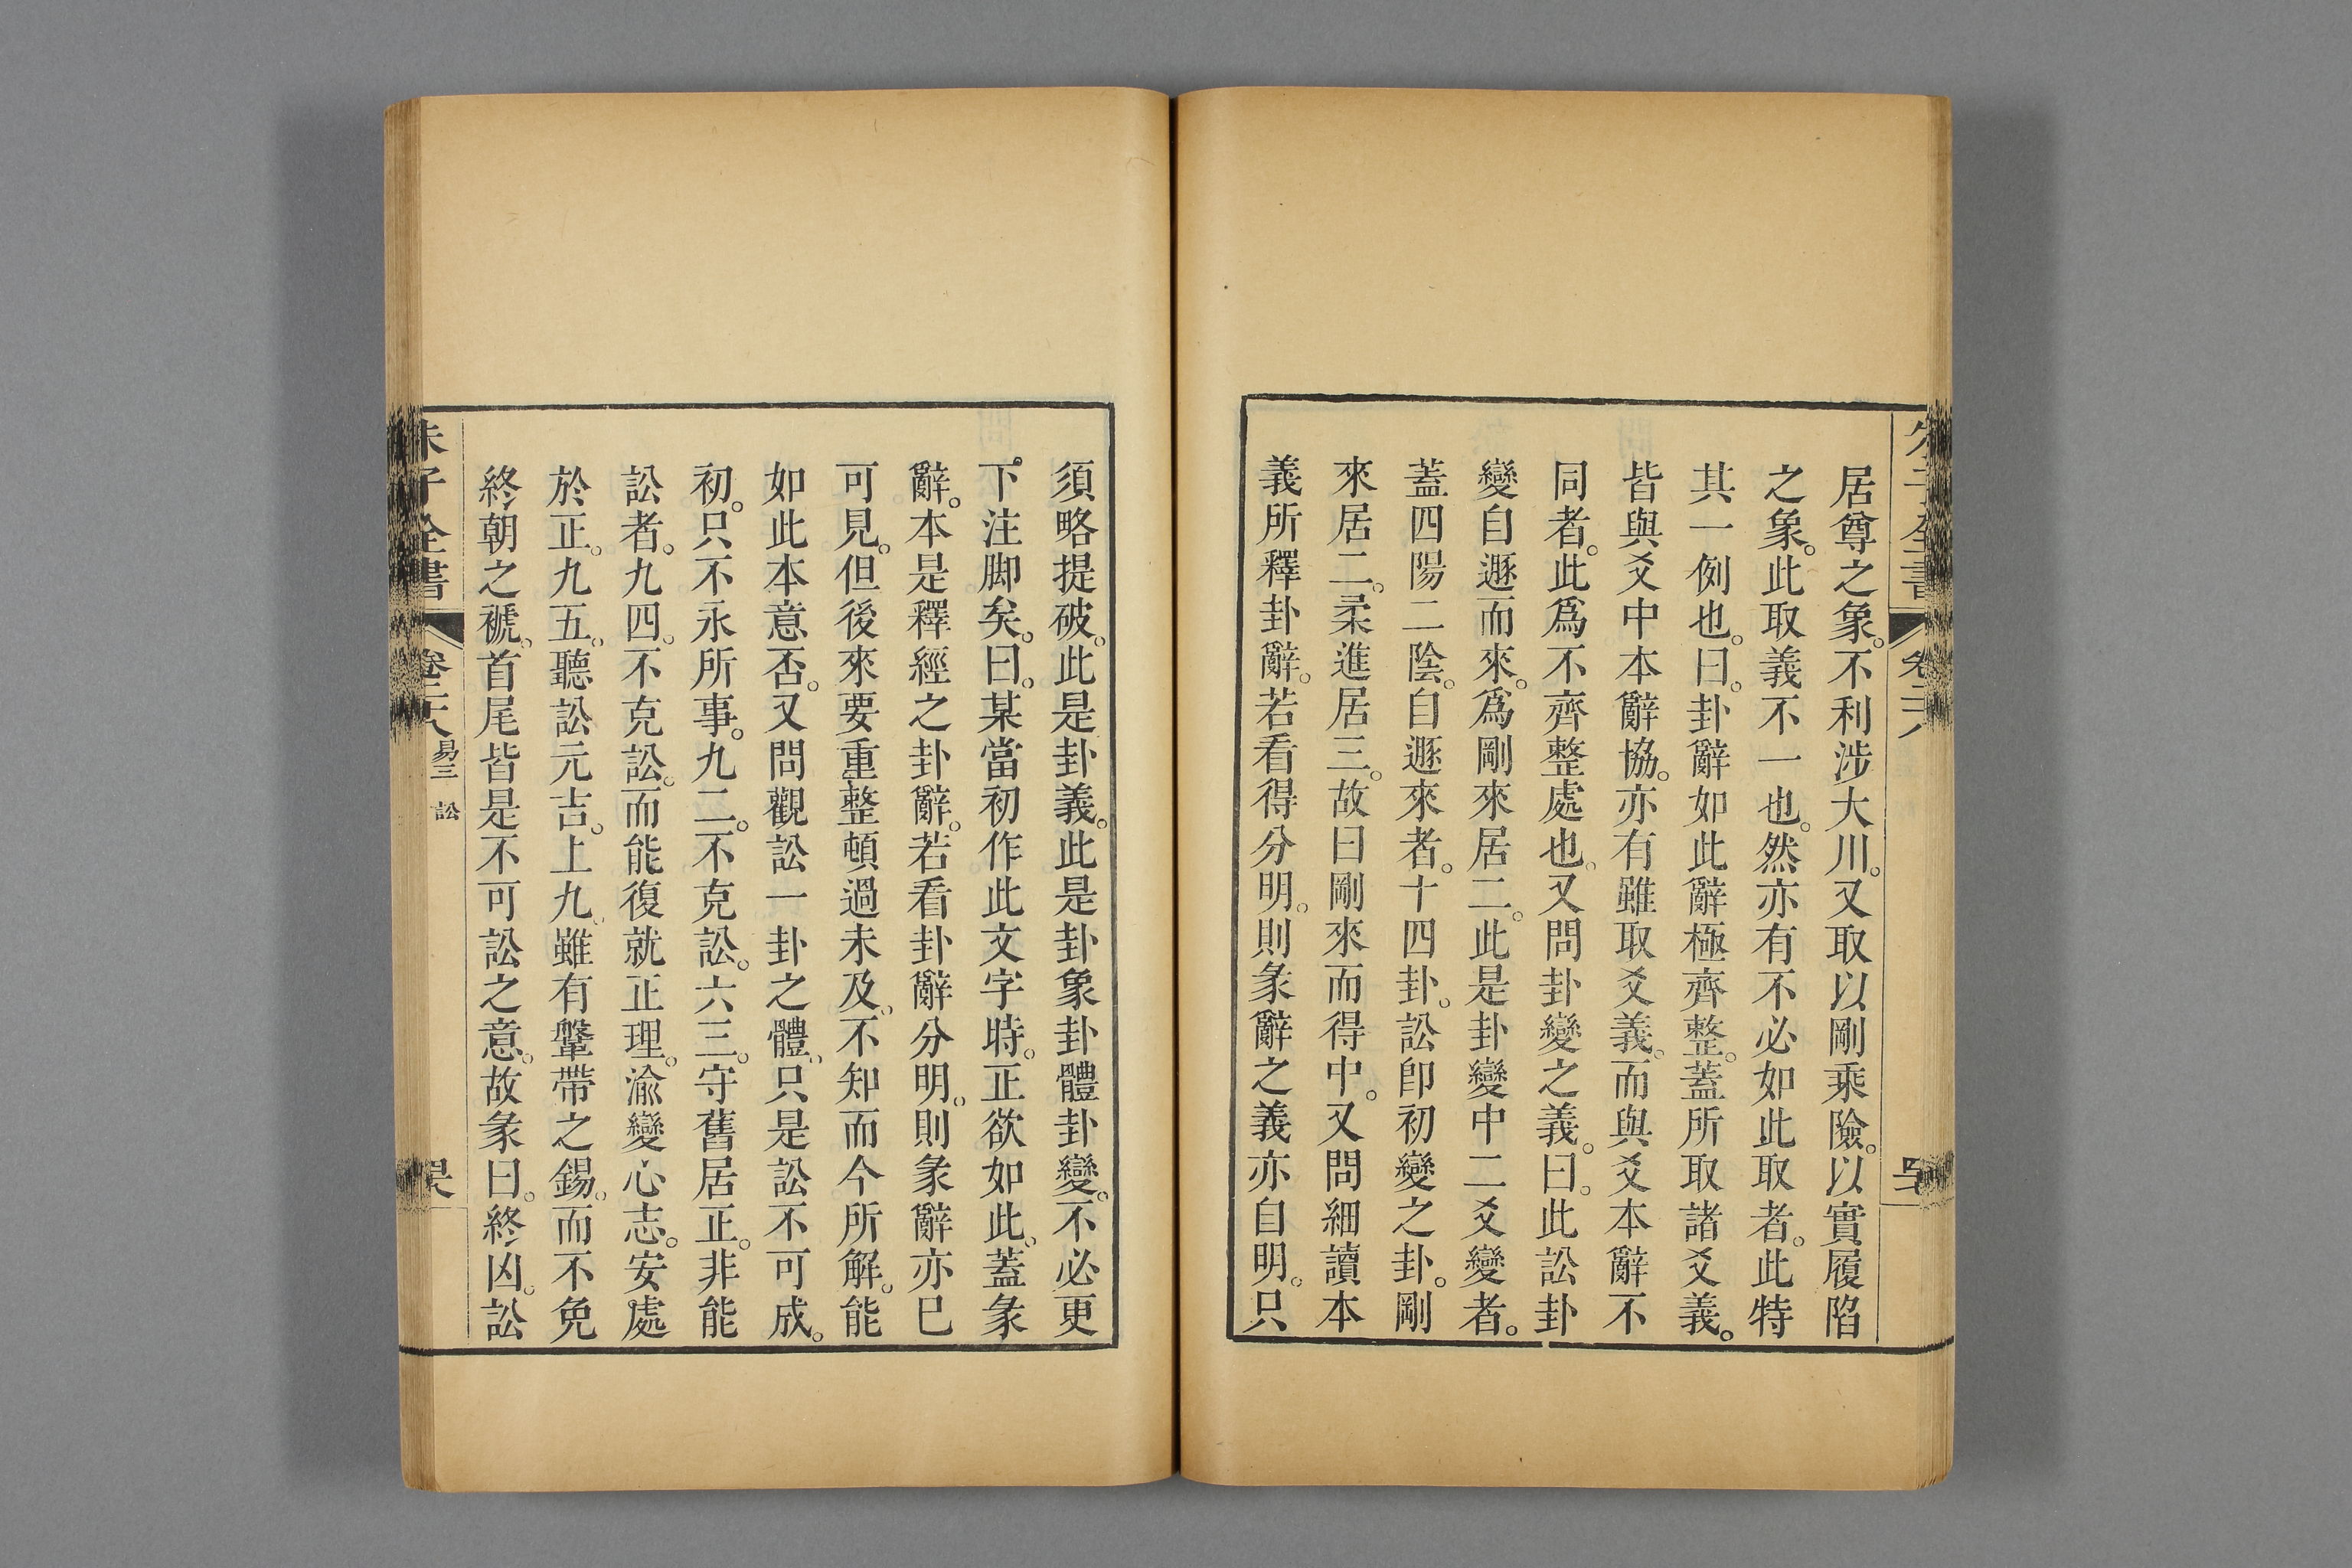 朱子全書 卷二十八
居尊之象。不利涉大川。又取以剛乘險。以實履陷
之象。此取義不一也。然亦有不必如此取者。此特
其一例也。曰。卦辭如此辭極齊整。蓋所取諸爻義。
皆與爻中本辭協。亦有雖取爻義。而與爻本辭不
同者。此爲不齊整處也。又問卦變之義。曰。此訟卦
變自遯而來。爲剛來居二。此是卦變中二爻變者。
蓋四陽二陰。自遯來者。十四卦。訟卽初變之卦。剛
來居二。柔進居三。故曰剛來而得中。又問細讀本
義所釋卦辭。若看得分明。則彖辭之義亦自明。只
須略提破。此是卦義。此是卦象卦體卦變。不必更
下注脚矣。曰。某當初作此文字時。正欲如此。蓋彖
辭。本是釋經之卦辭。若看卦辭分明。則彖辭亦已
可見。但後來要重整頓過未及。不知而今所解。能
如此本意否。又問觀訟一卦之體。只是訟不可成。
初。只不永所事。九二。不克訟。六三。守舊居正。非能
訟者。九四。不克訟。而能復就正理。渝變心志。安處
於正。九五。聽訟元吉。上九。雖有鞶帶之錫。而不免
終朝之褫。首尾皆是不可訟之意。故彖曰。終凶。訟
朱子全書 卷二十八 易三 訟